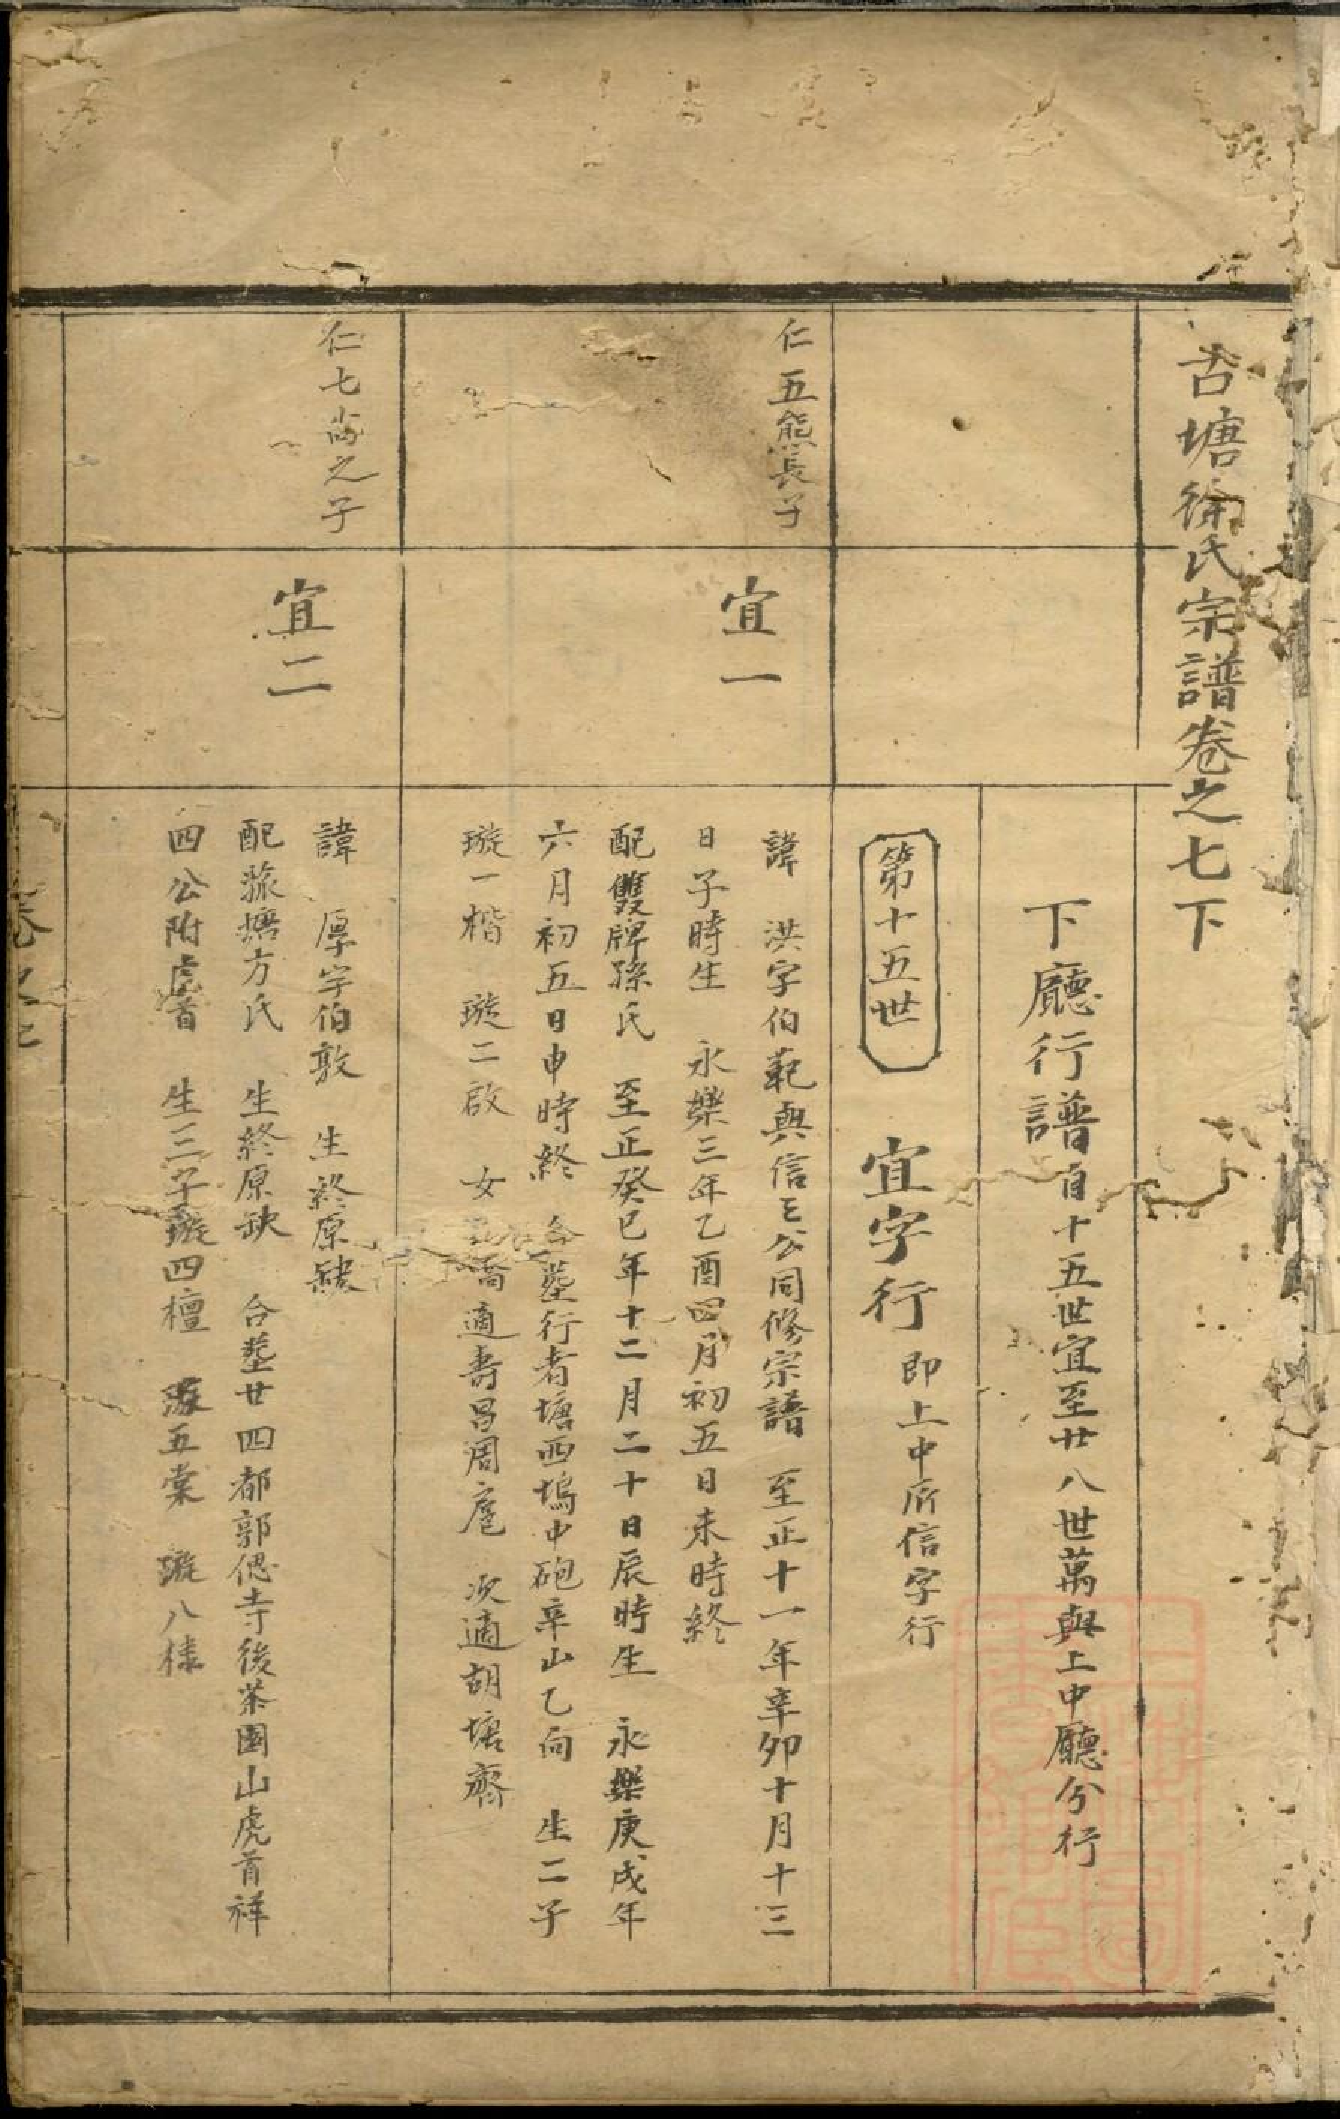 古塘徐氏宗譜卷之七下
下廳行譜自十五世宜至廿八世萬與上中廳分行
第十五世 宜字行 即上中所信字行
仁五熊長子
宜一
諱 洪字伯範與信三公同修宗譜 至正十一年辛卯十月十三
日子時生 永樂三年乙酉四月初五日未時終
配雙牌孫氏 至正癸巳年十二月二十日辰時生 永樂庚戌年
六月初五日申時終 合墓行者塘西塢中砲辛山乙向 生二子
璇一楷 璇二啟 女 適壽昌周 次適胡塘齋
仁七 之子
宜二
諱 厚字伯敦 生終原缺
配 塘方氏 生終原缺 合墓廿四都郭偲寺後茶園山虎首祥
四公附處 生三子璇四檀 璇五棠 璇八様
卷之七